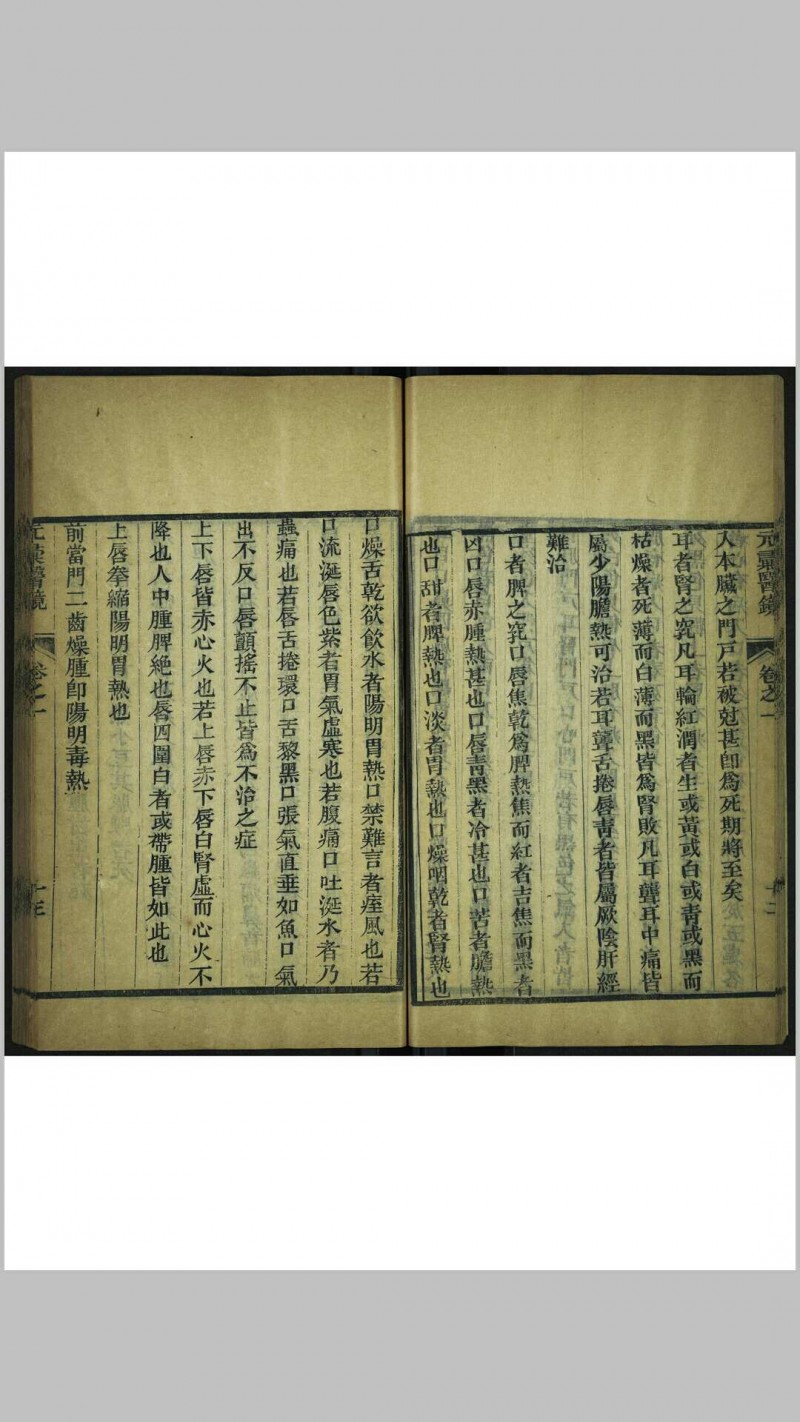 元氣醫鏡 卷之一 十二
大本臟之門戸若被尅甚卽爲死期將至矣
耳者腎之竅凡耳輪紅潤者生或黃或白或靑或黑而
枯燥者死薄而白薄而黑皆爲腎敗凡耳聾耳中痛皆
屬少陽膽熱可治若耳聾舌捲唇靑者皆屬厥陰肝經
難治
口者脾之竅口唇焦乾爲脾熱焦而紅者吉焦而黑者
凶口唇赤腫熱甚也口唇靑黑者冷甚也口苦者膽熱
也口甜者脾熱也口淡者胃熱也口燥咽乾者腎熱也
口燥舌乾欲飲水者陽明胃熱口禁難言者痓風也若
口流涎唇色紫者胃氣虛寒也若腹痛口吐涎水者乃
蟲痛也若唇舌捲環口舌黎黑口張氣直垂如魚口氣
出不反口唇顫搖不止皆爲不治之症
上下唇皆赤心火也若上唇赤下唇白腎虛而心火不
降也人中腫脾絶也唇四圍白者或帶腫皆如此也
上唇拳縮陽明胃熱也
前當門二齒燥腫卽陽明毒熱
醫鏡 卷之一 十三